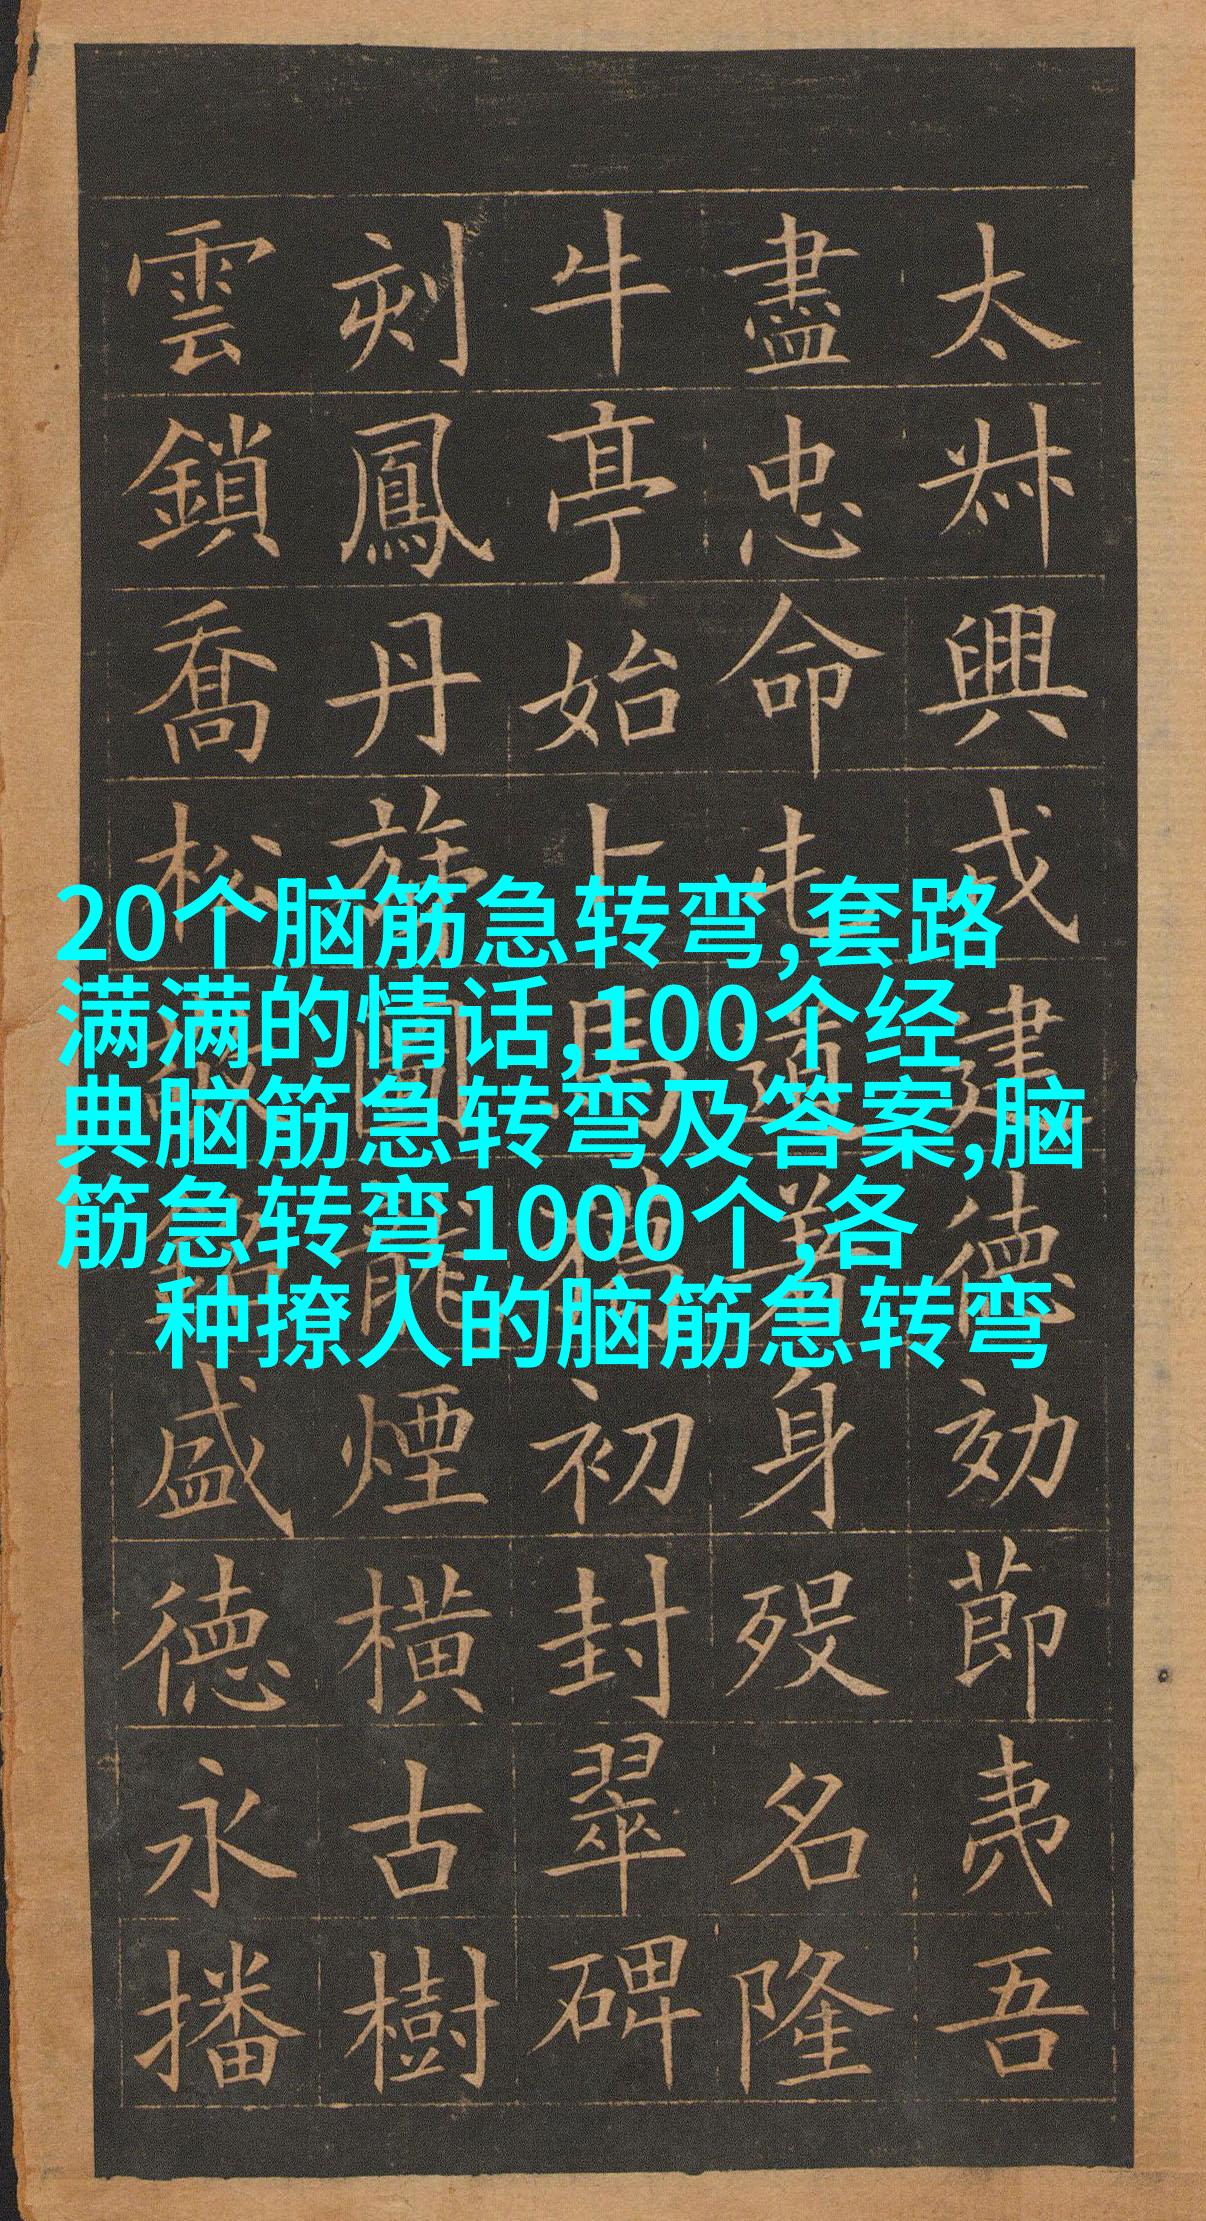 20个脑筋急转弯,套路
满满的情话,100个经
典脑筋急转弯及答案,脑
筋急转弯1000个,各
种撩人的脑筋急转弯
太興戎建德効節夷吾
盡忠命屯道著身歿名隆
牛亭始卜馬初封翠碑
刻鳳丹圖龍煙橫古樹
雲鎖喬松敬銘盛德永播